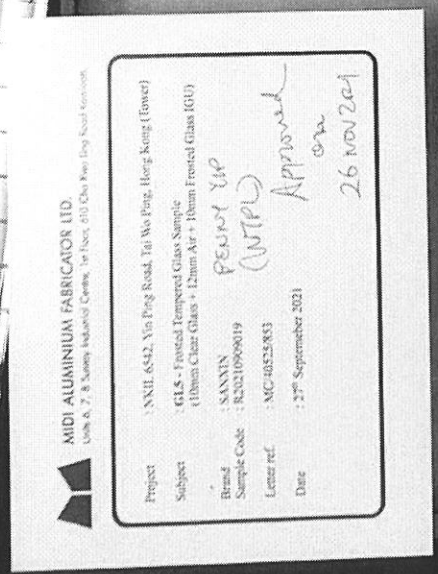 MIDI ALUMINIUM FABRICATOR LTD.
Units 6, 7, & 8 Sunray Industrial Centre, 1st Floor, 610 Cha Kwo Ling Road Kowloon
Project : NKIL 6542, Yin Ping Road, Tai Wo Ping, Hong Kong (Tower)
Subject : GL5 - Frosted Tempered Glass Sample
(10mm Clear Glass + 12mm Air + 10mm Frosted Glass IGU)
Brand : SANXIN
Sample Code : R20210909019
Letter ref. : MC/40525/853
Date : 27th Septemeber 2021
PENNY YIP
(WTPL)
Approved
on
26 NOV 2021